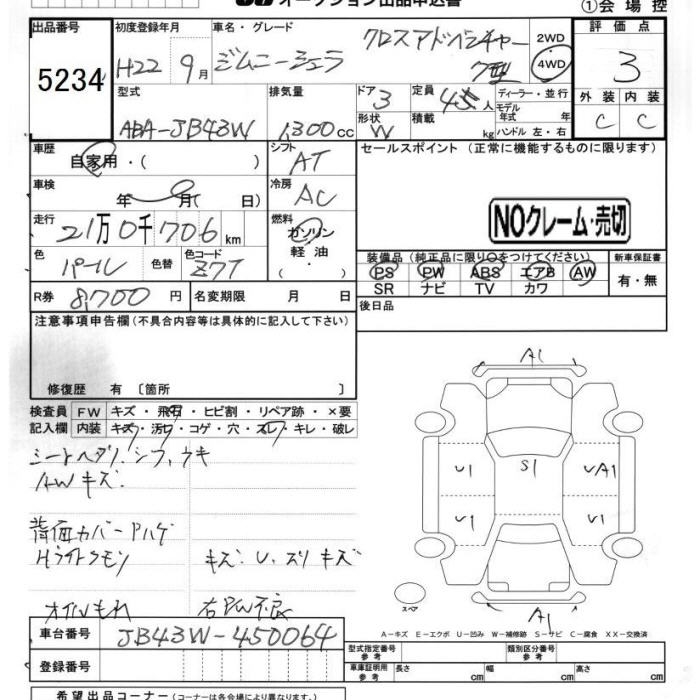 オークション出品申込書
①会場控
出品番号
5234
初度登録年月
H22 9月
車名・グレード
ジムニーシエラ
クロスアドベンチャー
7型
2WD
4WD
評価点
3
外装 内装
C C
型式
ABA-JB43W
排気量
1300cc
ドア 3
形状 W
定員 4人
積載 kg
ディーラー・並行
モデル年式 年
ハンドル 左・右
車歴
自家用・( )
シフト
AT
セールスポイント (正常に機能するものに限ります)
車検
年 月( 日)
冷房
AC
NOクレーム・売切
走行
21万0千706km
燃料
ガソリン
軽油
・
色
パール
色替
色コード
Z7T
装備品 (純正品に限り○をつけてください)
PS PW ABS エアB AW
SR ナビ TV カワ
新車保証書
有・無
R券 8,700円
名変期限 月 日
後日品
注意事項申告欄(不具合内容等は具体的に記入して下さい)
修復歴 有 〔箇所 〕
検査員記入欄
FW キズ・飛石・ヒビ割・リペア跡・×要
内装 キズ・汚れ・コゲ・穴・スレ・キレ・破レ
シートヘタリ、シワ、ウキ
AWキズ
背面カバーPハゲ
Hライトクモリ
キズ、U、スリキズ
オイルもれ
右PW不良
A1
U1 S1 UA1
U1 U1
スペア
A1
A−キズ E−エクボ U−凹み W−補修跡 S−サビ C−腐食 XX−交換済
車台番号
JB43W-450064
登録番号
型式指定番号
参考
類別区分番号
参考
車庫証明用
参考
長さ cm 幅 cm 高さ cm
希望出品コーナー(コーナーは各会場により異なります。)